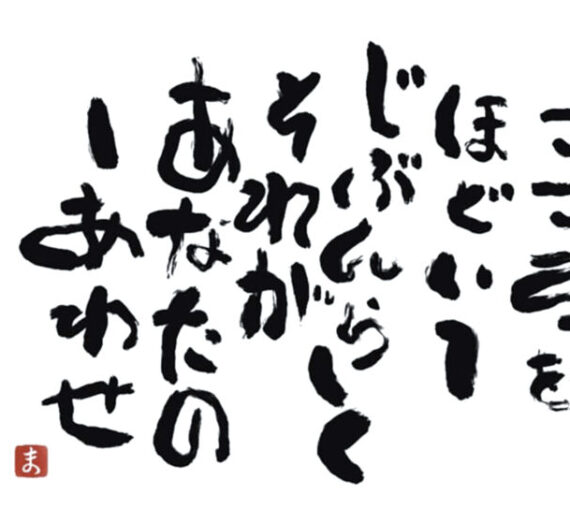 こころを
ほどいて
じぶんらしく
それが
あなたの
しあわせ
ま